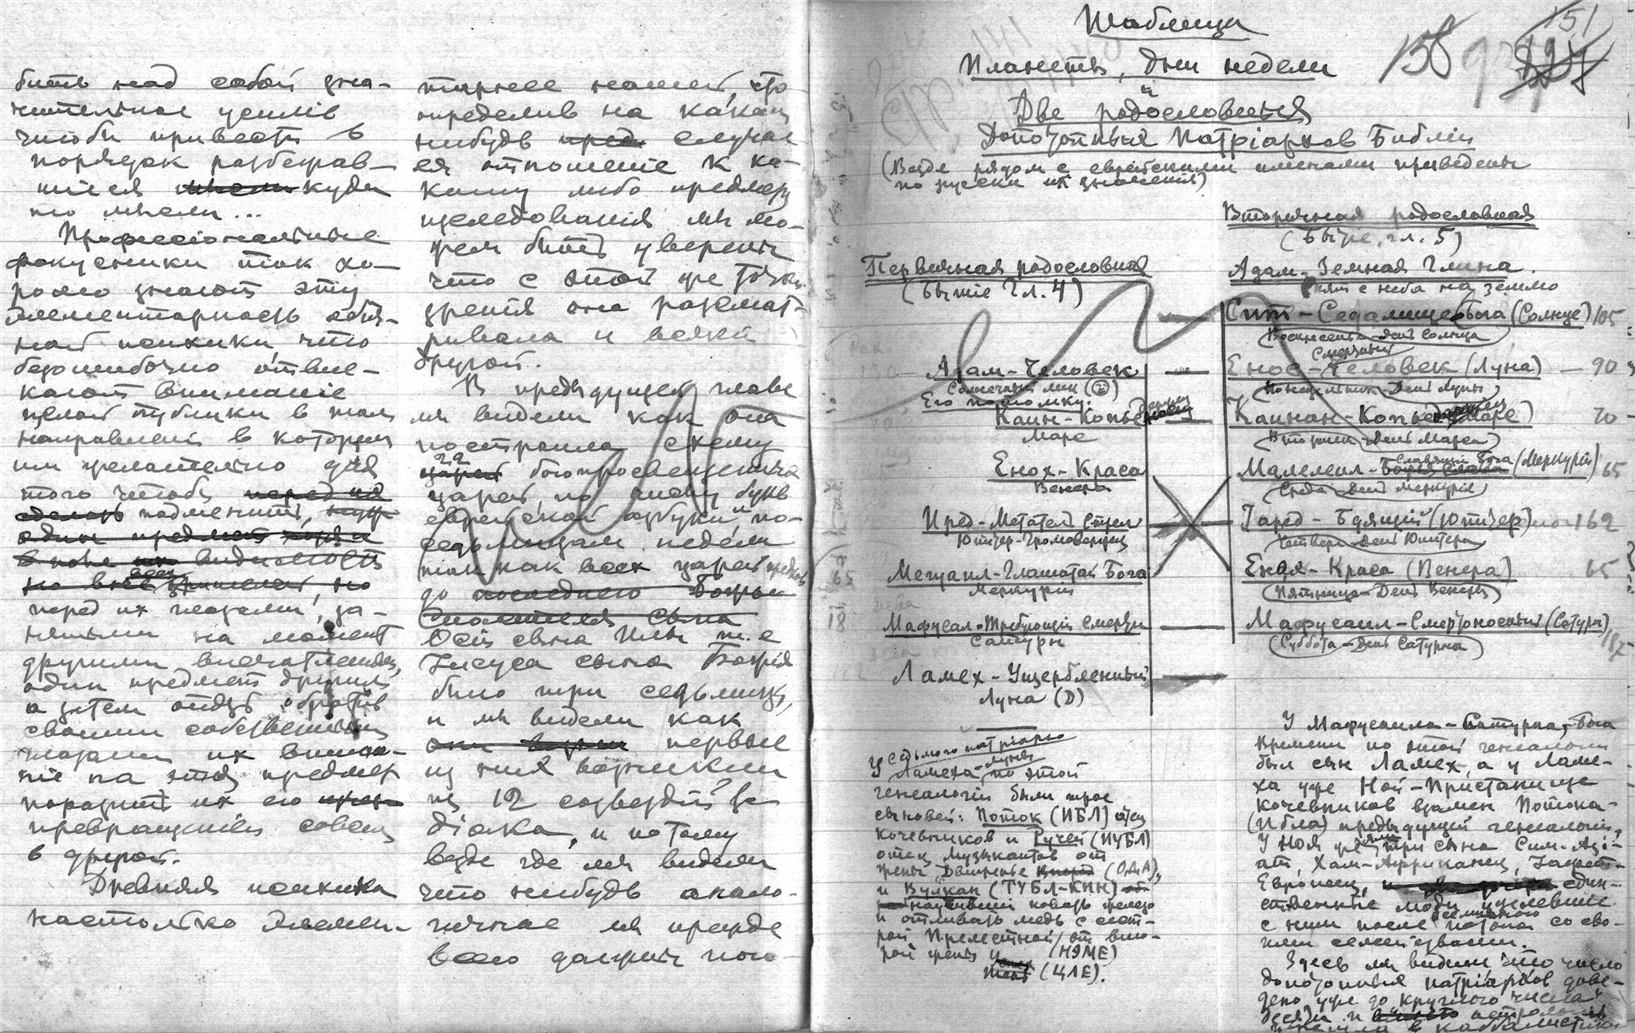 бить над собой зна-
чительное усиліе
чтобы привести в
порядок разбежав-
шіеся куда
то мысли...
Профессіональные
фокусники так хо-
рошо знают эту
элементарность обыч-
ной психики, что
безошибочно отвле-
кают вниманіе
целой публики в том
направленіи в котором
им желательно для
того чтобы
подменить,
перед их глазами, за-
нятыми на момент
другими впечатленіями,
один предмет другим,
а затем опять обратив
своими собственными
глазами их внима-
ніе на этот предмет
поразить их его
превращеніем совсем
в другой.
Древняя психика
настолько элемен-
тарнее нашей, что
определив на каком
нибудь случае
ея отношеніе к ка-
кому либо предмету
изследованія мы мо-
жем быть уверены
что с этой же точки
зренія она разсмат-
ривала и всякій
другой.
В предыдущей главе
мы видели как она
построила схему
богопросвещенных
царей, по числу букв
еврейской азбуки и по-
седьмицам недели
так как всех царей
до
Осіи сына Илы т. е
Іисуса сына Божія
было три седьмицы,
и мы видели как
первые
из них возникли
из 12 созвездій Зо-
діака, и потому
везде где мы видели
что нибудь анало-
гичное мы прежде
всего должны
Таблица
Планеты, дни недели
и
Две родословныя
Допотопных Патріархов Библіи
(Везде рядом с еврейскими именами приведены
по русски их значенія)
151
158
Первичная родословная
(Бытіе Гл. 4)
Адам-Человек
Солнечный лик (☉)
Его потомки:
Каин-Копье
Марс
Енох-Краса
Венера
Ирад-Метатель Стрел
Юпитер-Громовержец
Мегуаил-Глашатай Бога
Меркурій
Мафусал-Требующій смерти
Сатурн
Ламех-Ущербленный
Луна (D)
Вторичная родословная
(Бытіе, гл. 5)
Адам-Земная Глина.
с неба на землю
Сит-Седалище Бога (Солнце) 105
Воскресенье-День Солнца
Смертный
Енос-Человек (Луна) — 90
Понедельник-День Луны
Каинан-Копье (Марс) 70
Вторник-День Марса
Славящій Бога
Малелеил- (Меркурій) 65
Среда-День Меркурія
Іаред-Бдящій (Юпитер) 162
Четверг-День Юпитера
Енох-Краса (Венера) 65
Пятница-День Венеры
Мафусаил-Смертоносный (Сатурн) 187
(Суббота-День Сатурна)
У седьмого патріарха
Ламеха-Луны по этой
генеалогіи были трое
сыновей: Поток (ИБЛ) отец
кочевников и Ручей (ИУБЛ)
отец музыкантов от
жены Движенье (ОДА),
и Вулкан (ТУБЛ-КИН)
научившій ковать железо
и отливать медь с сест-
рой Прелестной от вто-
рой жены (НЭМЕ)
(ЦЛЕ).
У Мафусаила-Сатурна, Бога
времени по этой генеалогіи
был сын Ламех, а у Ламе-
ха уже Ной-Пристанище
кочевников взамен Потока-
(Ибла) предыдущей генеалогіи,
У Ноя уже три сына Сим-Азі-
ат, Хам-Африканец, Іафет-
Европеец, един-
ственные люди уцелевшіе
с ним после всемірного потопа со сво-
ими семействами.
Здесь мы видим что число
допотопных патріархов дове-
дено уже до круглого числа
десяти и